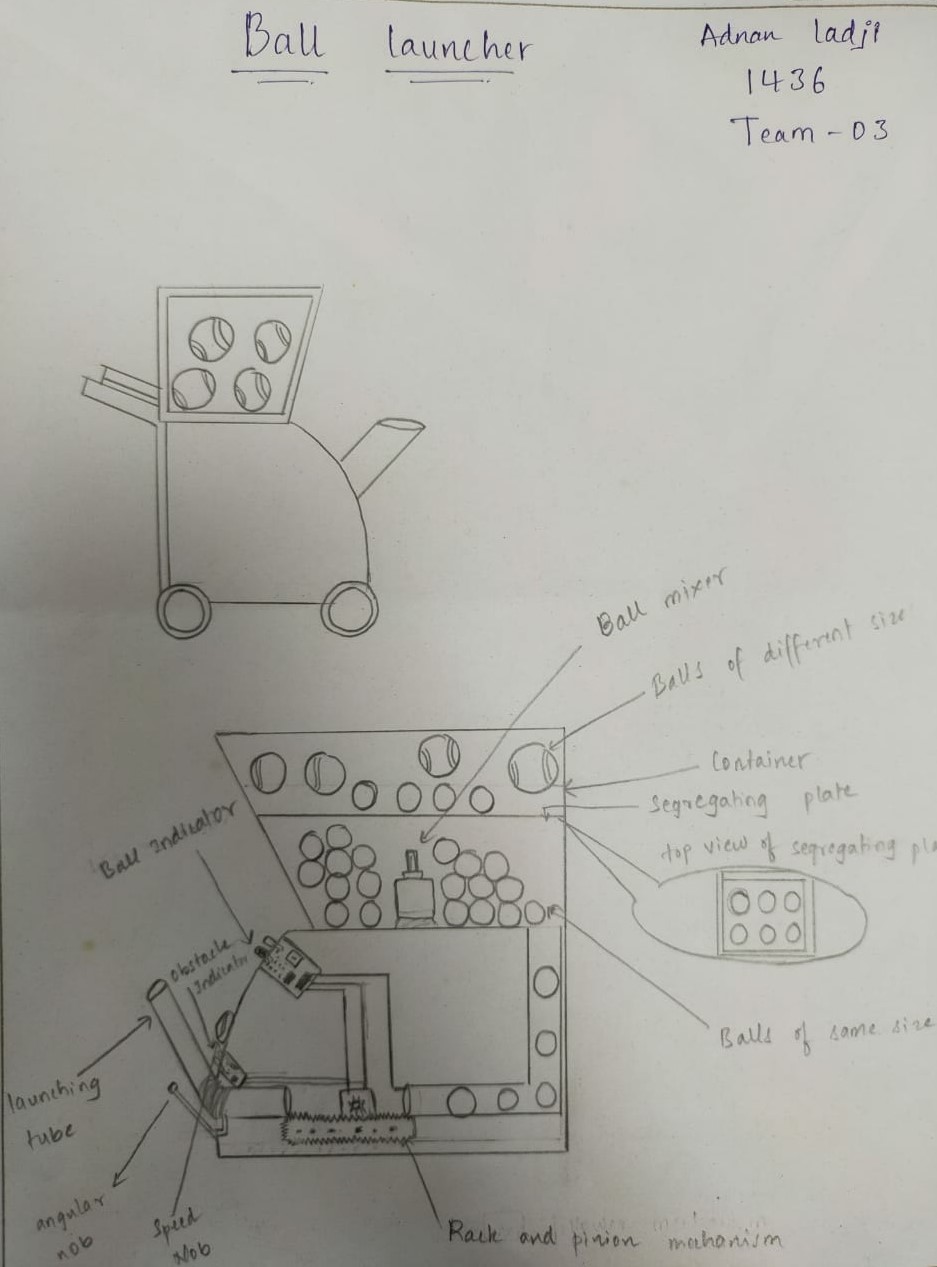 Ball launcher
Adnan Ladji
1436
Team - 03
Ball mixer
Balls of different size
Container
Segregating plate
top view of segregating pla
Ball Indicator
Obstacle
Indicator
Balls of same size
launching
tube
angular
nob
Speed
Nob
Rack and pinion mechanism